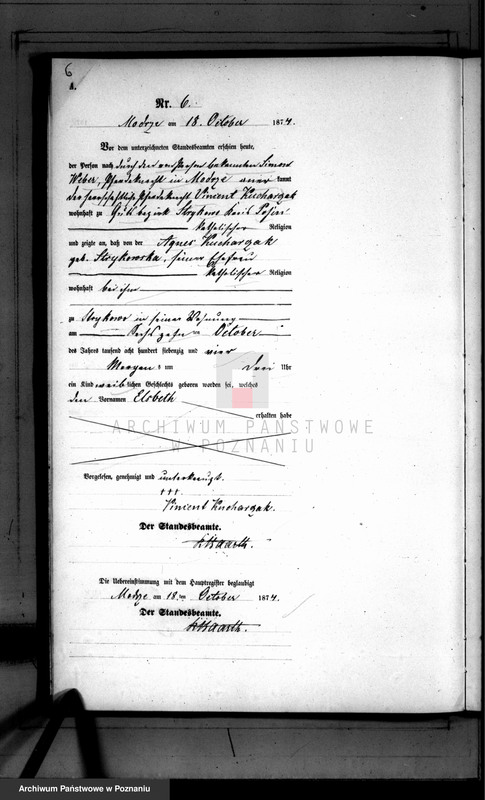 6
A.
Nr. 6.
Modrze am 18. October 1874.
Vor dem unterzeichneten Standesbeamten erschien heute,
der Person nach durch den von Person bekannten Simon
Weber, Pferdeknecht in Modrze aner kannt
der herrschaftliche Pferdeknecht Vincent Kucharzak
wohnhaft zu Guts bezirk Strykowo Kreis Posen
katholischer Religion
und zeigte an, daß von der Agnes Kucharzak
geb. Strykowska, seiner Ehefrau
katholischer Religion
wohnhaft bei ihm
zu Strykowo in seiner Wohnung
am Sechszehn ten October
des Jahres tausend acht hundert siebenzig und vier
Morgens um Drei Uhr
ein Kind weib lichen Geschlechts geboren worden sei, welches
den Vornamen Elsbeth
erhalten habe
ARCHIWUM PAŃSTWOWE
W POZNANIU
Vorgelesen, genehmigt und unterkreuzt.
+++
Vincent Kucharzak.
Der Standesbeamte.
Die Uebereinstimmung mit dem Hauptregister beglaubigt
Modrze am 18. ten October 1874.
Der Standesbeamte.
Archiwum Państwowe w Poznaniu